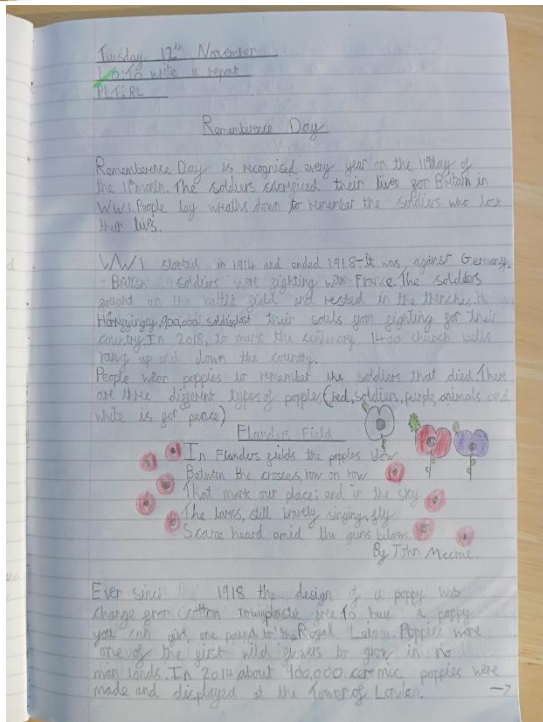 Tuesday 12th November
L.O: To write a report
PLT: RL
Rememberence Day
Rememberence Day is recognised every year on the 11th day of
the 11th month. The soldiers sacrificed their lives for Britain in
WW1. People lay wreaths down to remember the soldiers who lost
their lives.
WW1 started in 1914 and ended 1918 - it was against Germany.
British soldiers were fighting with France. The soldiers
fought on the battle field and rested in the trenches.
Harrifyingly, 900,000 soldiers lost their souls from fighting for their
country. In 2018, to mark the centenary 1400 church bells
rang up and down the country.
People wear poppies to remember the soldiers that died. There
are three different types of poppies (red, soldiers, purple, animals and
white is for peace)
Flanders Field
In Flanders fields the poppies blow
Between the crosses, row on row
That mark our place; and in the sky
The larks, still bravely singing, fly
Scare heard amid the guns below.
By John Mccrae.
Ever since 1918 the design of a poppy has
change from cotton to plastic To buy a poppy
you can give one pound to the Royal Leion. Poppies were
one of the first wild flowers to grow in no
man lands. In 2014 about 900,000 cermic poppies were
made and displayed at the Tower of London.
→